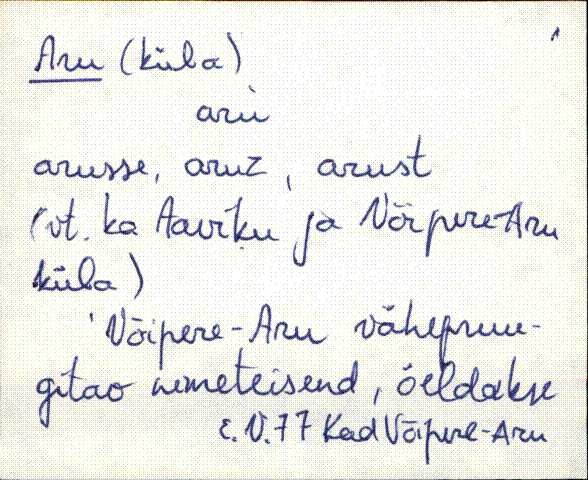 Aru (küla)
aru
arusse, aruz, arust
(vt. ka Aaviku ja Võipere-Aru
küla)
'Võipere-Aru vähepruu-
gitao nimeteisend, öeldakse
E.V.77 Kad Võipere-Aru